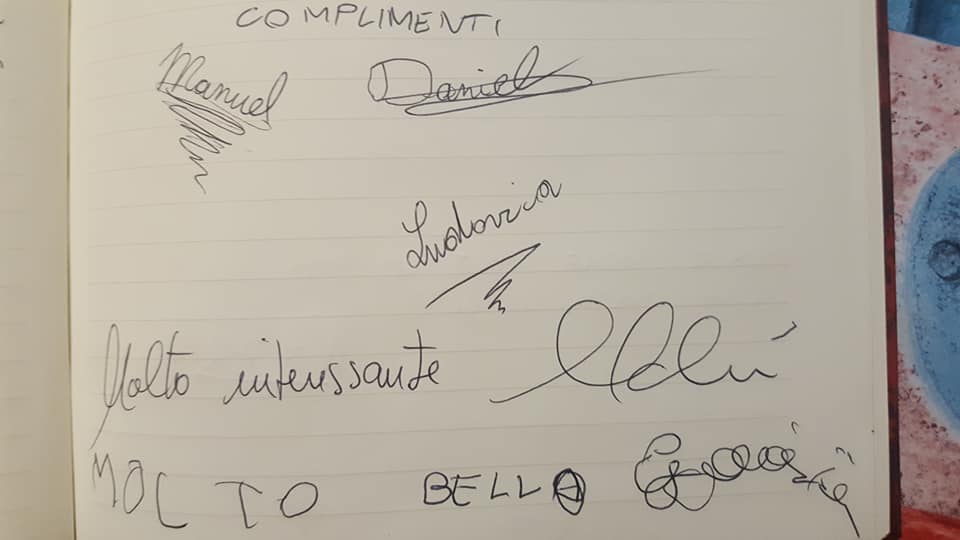 COMPLIMENTI
Manuel Daniel
Ludovica
Molto interessante
MOLTO BELLO